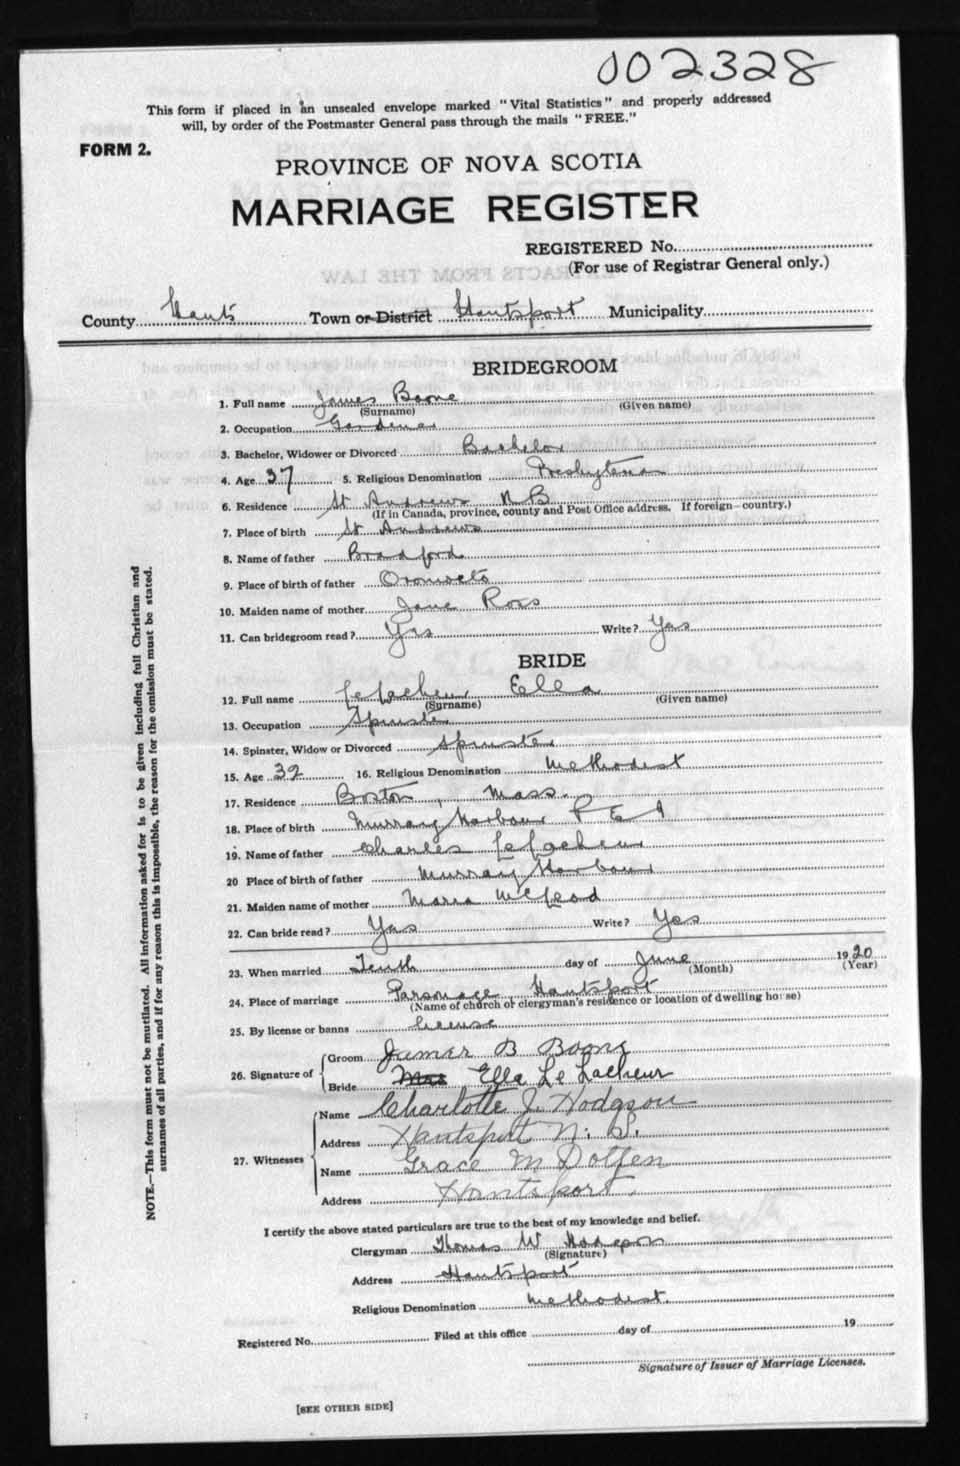 002328
This form if placed in an unsealed envelope marked "Vital Statistics" and properly addressed
will, by order of the Postmaster General pass through the mails "FREE."
FORM 2.
PROVINCE OF NOVA SCOTIA
MARRIAGE REGISTER
REGISTERED No.
(For use of Registrar General only.)
County Hants Town or District Hantsport Municipality
BRIDEGROOM
1. Full name James Boone
(Surname) (Given name)
2. Occupation Gardener
3. Bachelor, Widower or Divorced Bachelor
4. Age 37 5. Religious Denomination Presbyterian
6. Residence St Andrews N B
(If in Canada, province, county and Post Office address. If foreign—country.)
7. Place of birth St Andrews
8. Name of father Bradford
9. Place of birth of father Oromocto
10. Maiden name of mother Jane Ross
11. Can bridegroom read? Yas Write? Yas
BRIDE
12. Full name LeLacheur Ella
(Surname) (Given name)
13. Occupation Spinster
14. Spinster, Widow or Divorced Spinster
15. Age 32 16. Religious Denomination Methodist
17. Residence Boston, Mass.
18. Place of birth Murray Harbour P E I
19. Name of father Charles LeLacheur
20 Place of birth of father Murray Harbour
21. Maiden name of mother Maria McLeod
22. Can bride read? Yas Write? Yes
23. When married Tenth day of June 1920
(Month) (Year)
24. Place of marriage Parsonage Hantsport
(Name of church or clergyman's residence or location of dwelling house)
25. By license or banns license
26. Signature of Groom James B Boone
Bride Mrs Ella Le Lacheur
27. Witnesses Name Charlotte J. Hodgson
Address Hantsport N. S.
Name Grace M Dotten
Address Hantsport.
I certify the above stated particulars are true to the best of my knowledge and belief.
Clergyman Thomas W Hodgson
(Signature)
Address Hantsport
Religious Denomination Methodist.
Registered No. Filed at this office day of 19
Signature of Issuer of Marriage Licenses.
[SEE OTHER SIDE]
NOTE.—This form must not be mutilated. All information asked for is to be given including full Christian and
surnames of all parties, and if for any reason this is impossible, the reason for the omission must be stated.